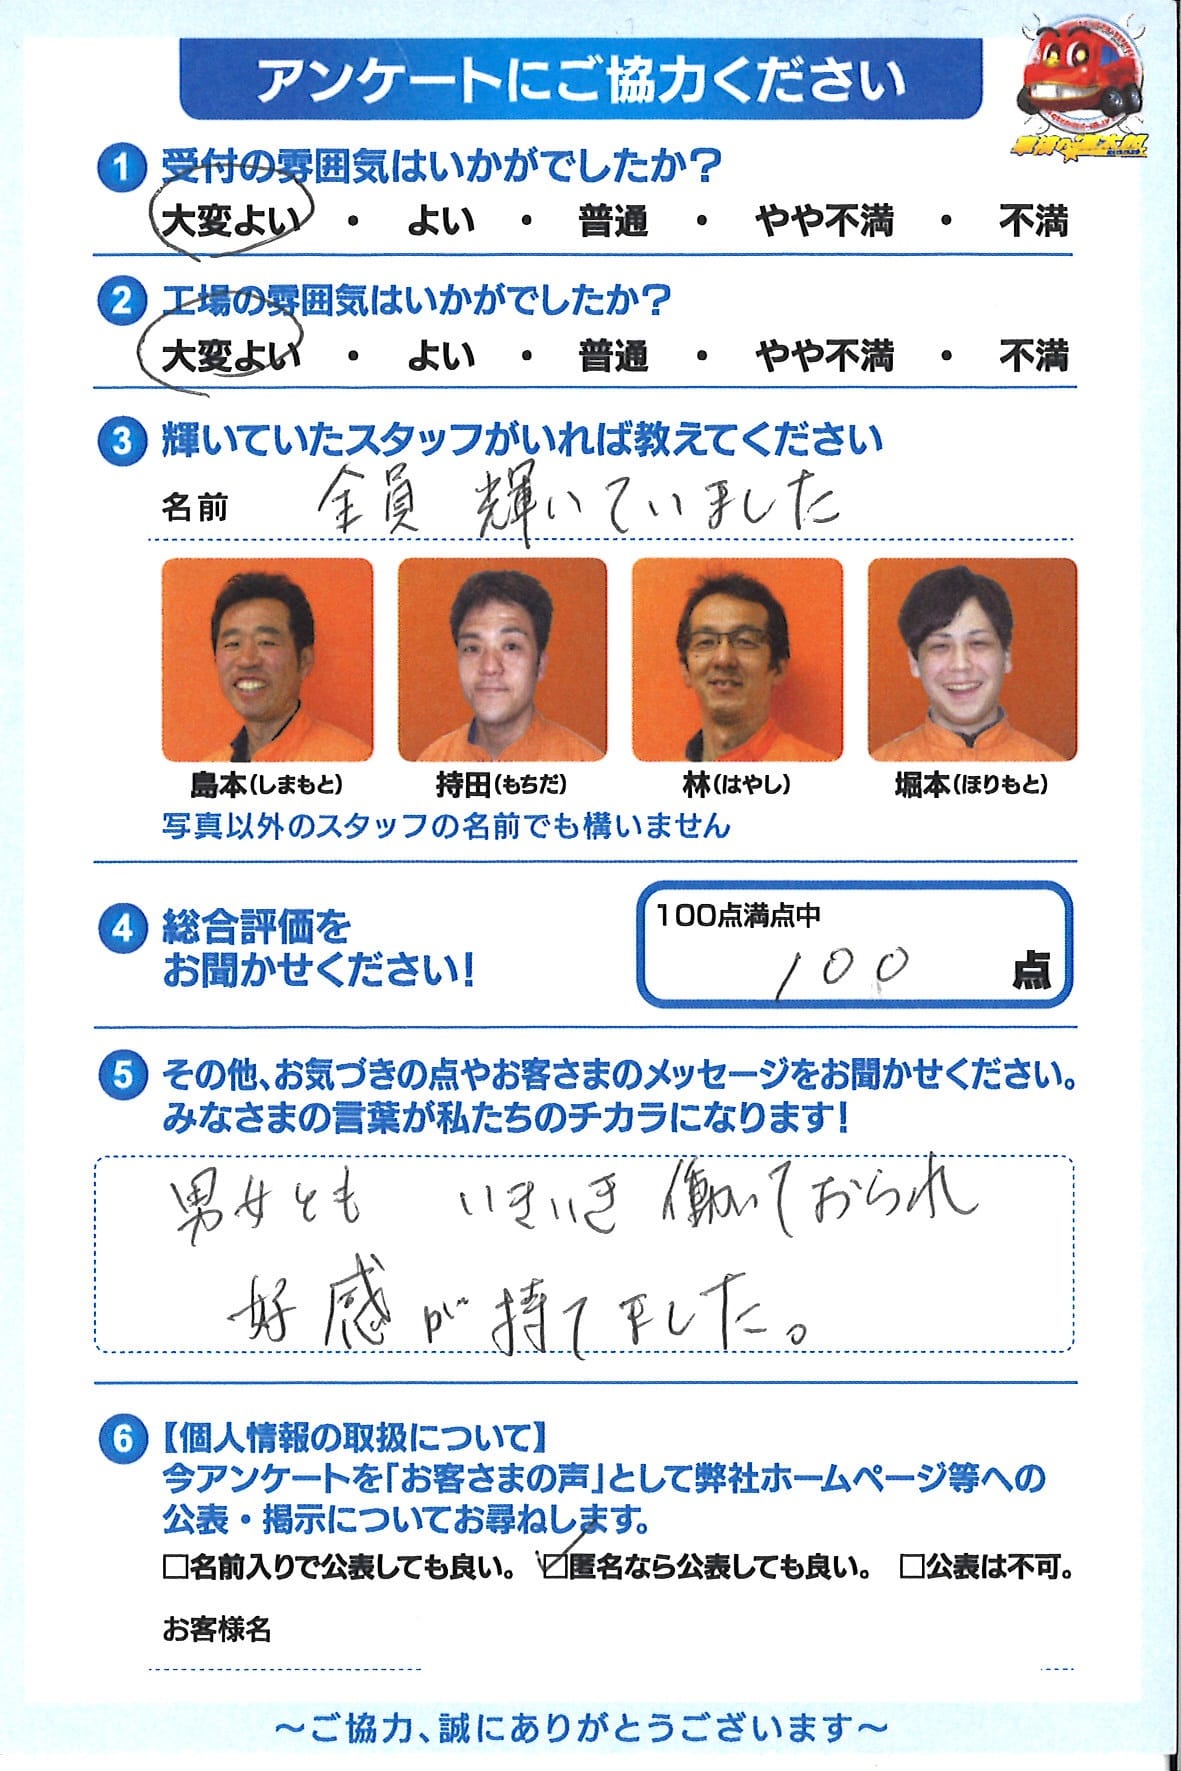 アンケートにご協力ください
1 受付の雰囲気はいかがでしたか？
大変よい ・ よい ・ 普通 ・ やや不満 ・ 不満
2 工場の雰囲気はいかがでしたか？
大変よい ・ よい ・ 普通 ・ やや不満 ・ 不満
3 輝いていたスタッフがいれば教えてください
名前 全員 輝いていました
島本(しまもと) 持田(もちだ) 林(はやし) 堀本(ほりもと)
写真以外のスタッフの名前でも構いません
4 総合評価を
お聞かせください！
100点満点中
100 点
5 その他、お気づきの点やお客さまのメッセージをお聞かせください。
みなさまの言葉が私たちのチカラになります！
男女とも いきいき 働いておられ
好感が持てました。
6 【個人情報の取扱について】
今アンケートを「お客さまの声」として弊社ホームページ等への
公表・掲示についてお尋ねします。
□名前入りで公表しても良い。 ☑匿名なら公表しても良い。 □公表は不可。
お客様名
～ご協力、誠にありがとうございます～